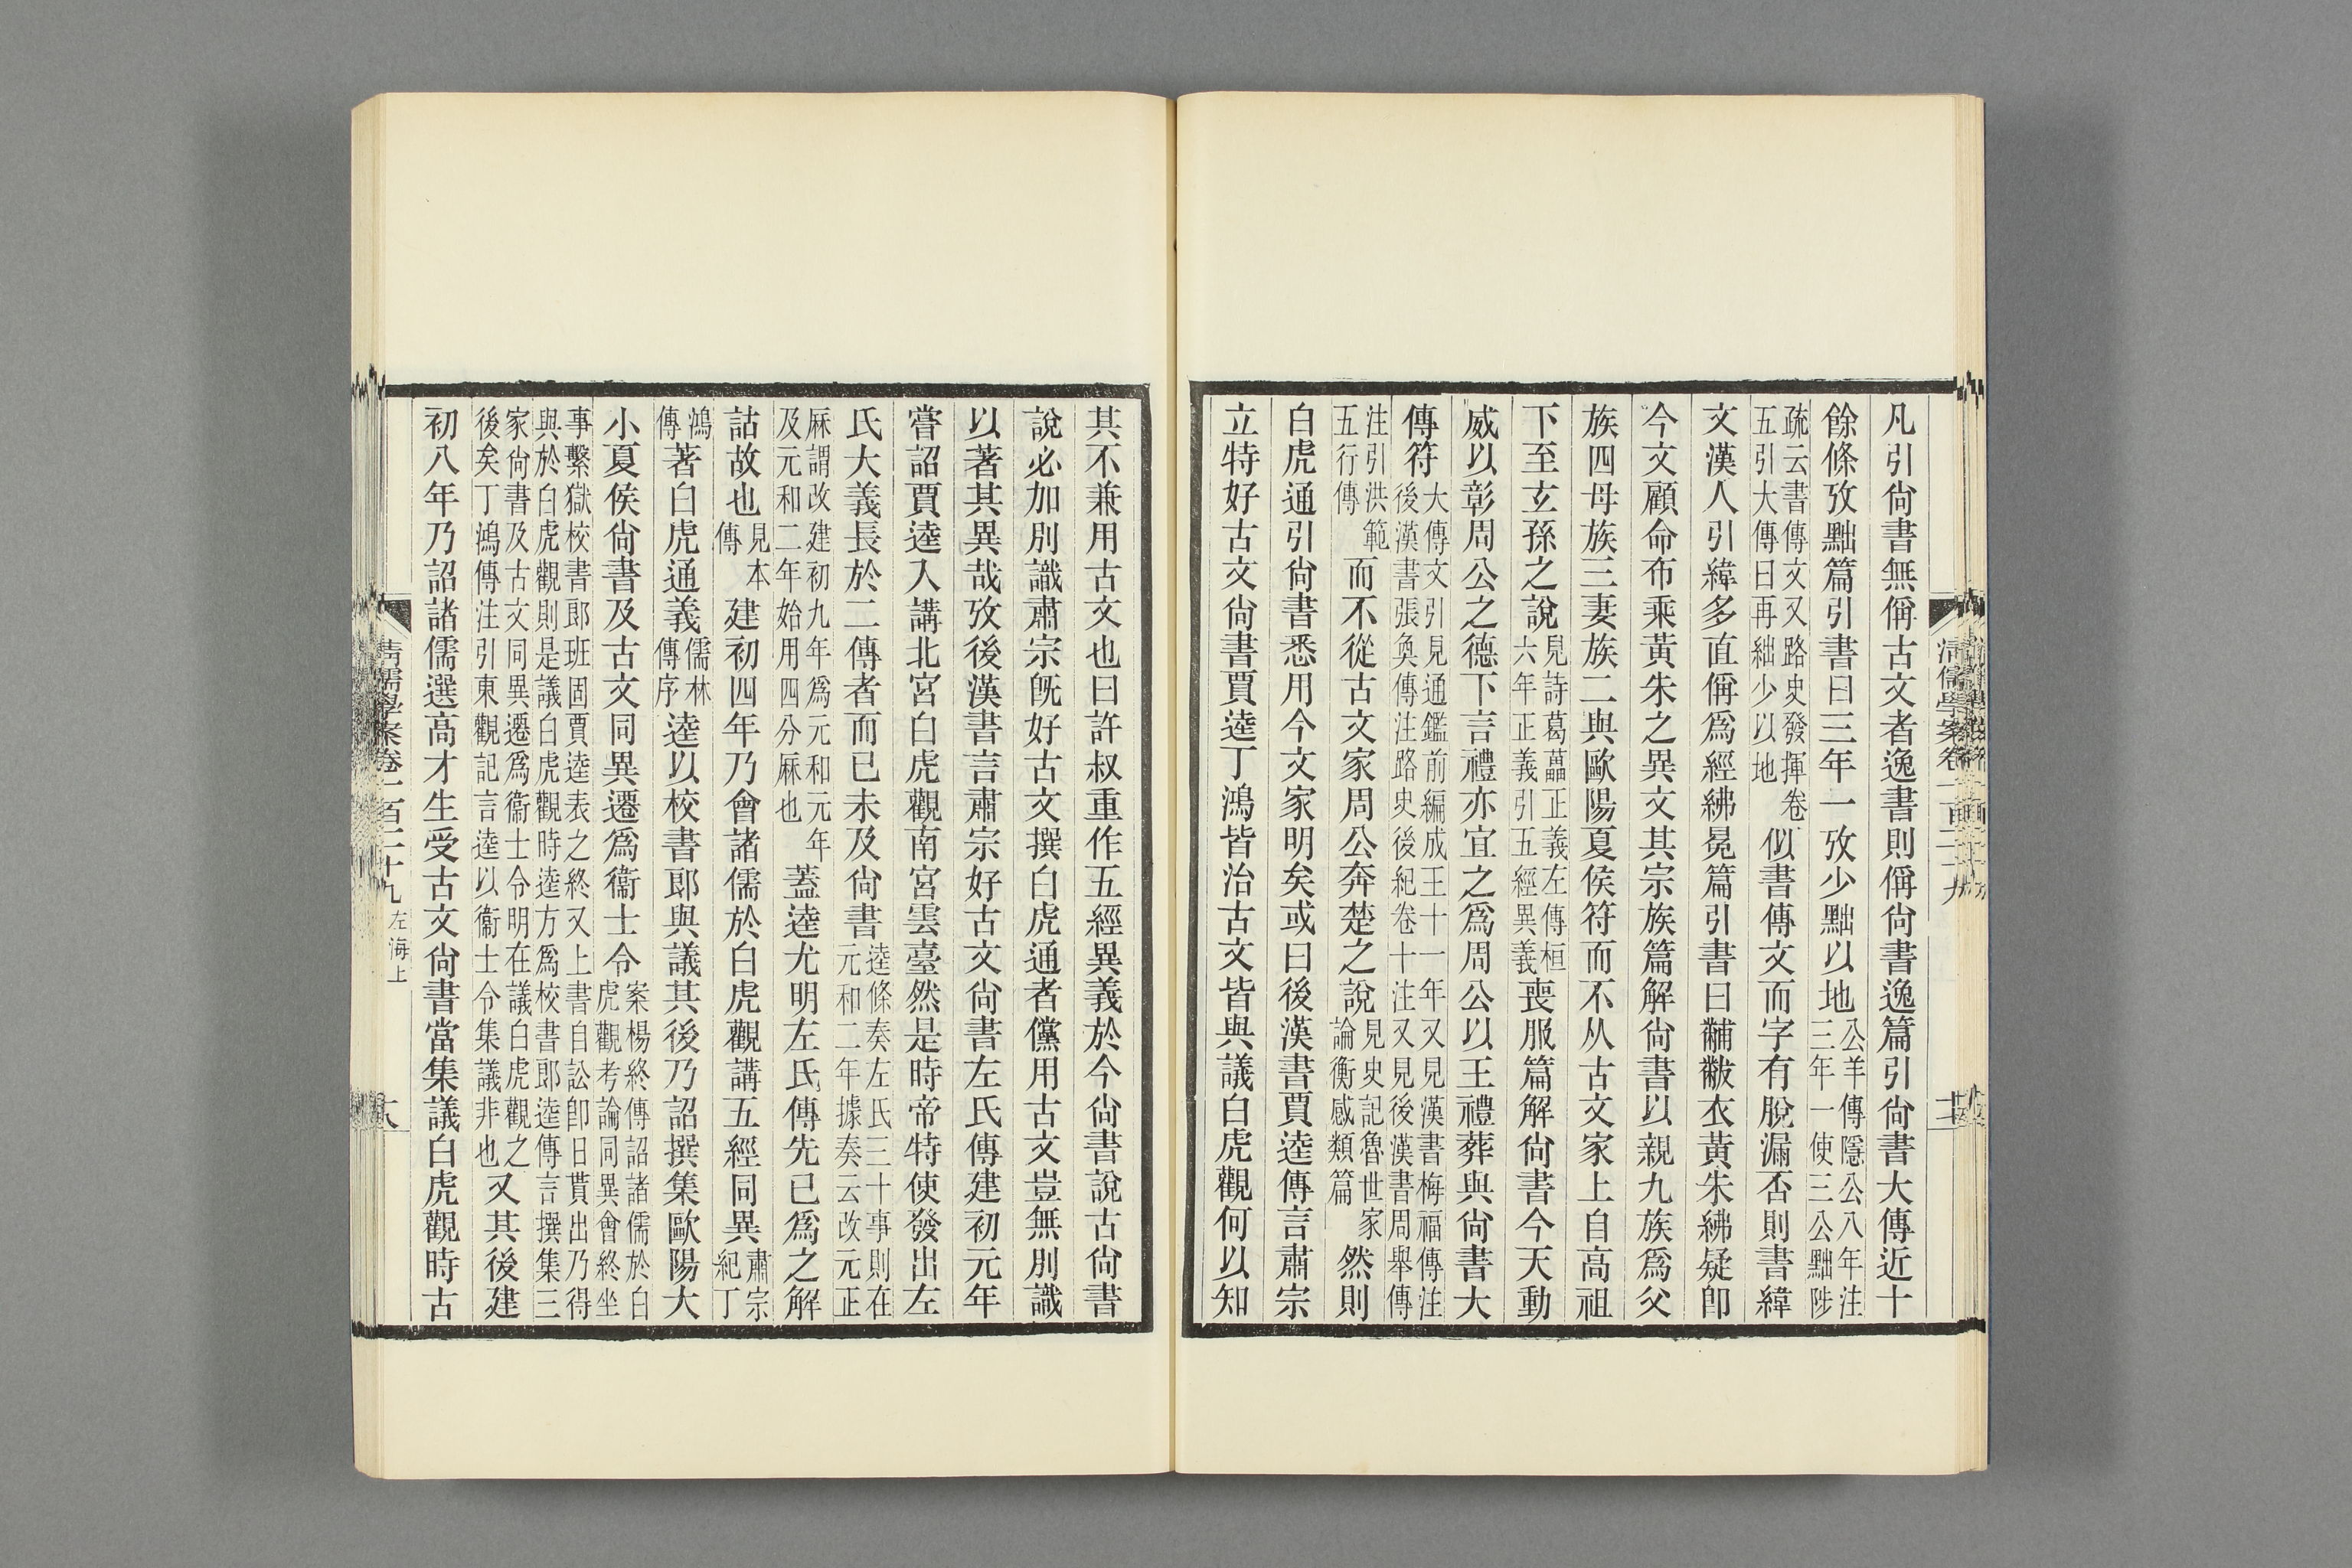 凡引尙書無偁古文者逸書則偁尙書逸篇引尙書大傳近十
餘條攷黜篇引書曰三年一攷少黜以地公羊傳隱公八年注三年一使三公黜陟
疏云書傳文又路史發揮卷五引大傳曰再絀少以地似書傳文而字有脫漏否則書緯
文漢人引緯多直偁爲經紼冕篇引書曰黼黻衣黃朱紼疑卽
今文顧命布乘黃朱之異文其宗族篇解尙書以親九族爲父
族四母族三妻族二與歐陽夏侯符而不从古文家上自高祖
下至玄孫之說見詩葛藟正義左傳桓六年正義引五經異義喪服篇解尙書今天動
威以彰周公之德下言禮亦宜之爲周公以王禮葬與尙書大
傳符大傳文引見通鑑前編成王十一年又見漢書梅福傳注後漢書張奐傳注路史後紀卷十注又見後漢書周舉傳
注引洪範五行傳而不從古文家周公奔楚之說見史記魯世家論衡感類篇然則
白虎通引尙書悉用今文家明矣或曰後漢書賈逵傳言肅宗
立特好古文尙書賈逵丁鴻皆治古文皆與議白虎觀何以知
清儒學案卷一百二十九
其不兼用古文也曰許叔重作五經異義於今尙書說古尙書
說必加別識肅宗旣好古文撰白虎通者儻用古文豈無別識
以著其異哉攷後漢書言肅宗好古文尙書左氏傳建初元年
嘗詔賈逵入講北宮白虎觀南宮雲臺然是時帝特使發出左
氏大義長於二傳者而已未及尙書逵條奏左氏三十事則在元和二年據奏云改元正
厤謂改建初九年爲元和元年及元和二年始用四分厤也蓋逵尤明左氏傳先已爲之解
詁故也見本傳建初四年乃會諸儒於白虎觀講五經同異肅宗紀丁
鴻傳著白虎通義儒林傳序逵以校書郎與議其後乃詔撰集歐陽大
小夏侯尙書及古文同異遷爲衞士令案楊終傳詔諸儒於白虎觀考論同異會終坐
事繫獄校書郎班固賈逵表之終又上書自訟卽日貰出乃得與於白虎觀則是議白虎觀時逵方爲校書郎逵傳言撰集三
家尙書及古文同異遷爲衞士令明在議白虎觀之後矣丁鴻傳注引東觀記言逵以衞士令集議非也又其後建
初八年乃詔諸儒選高才生受古文尙書當集議白虎觀時古
清儒學案卷一百二十九 左海上